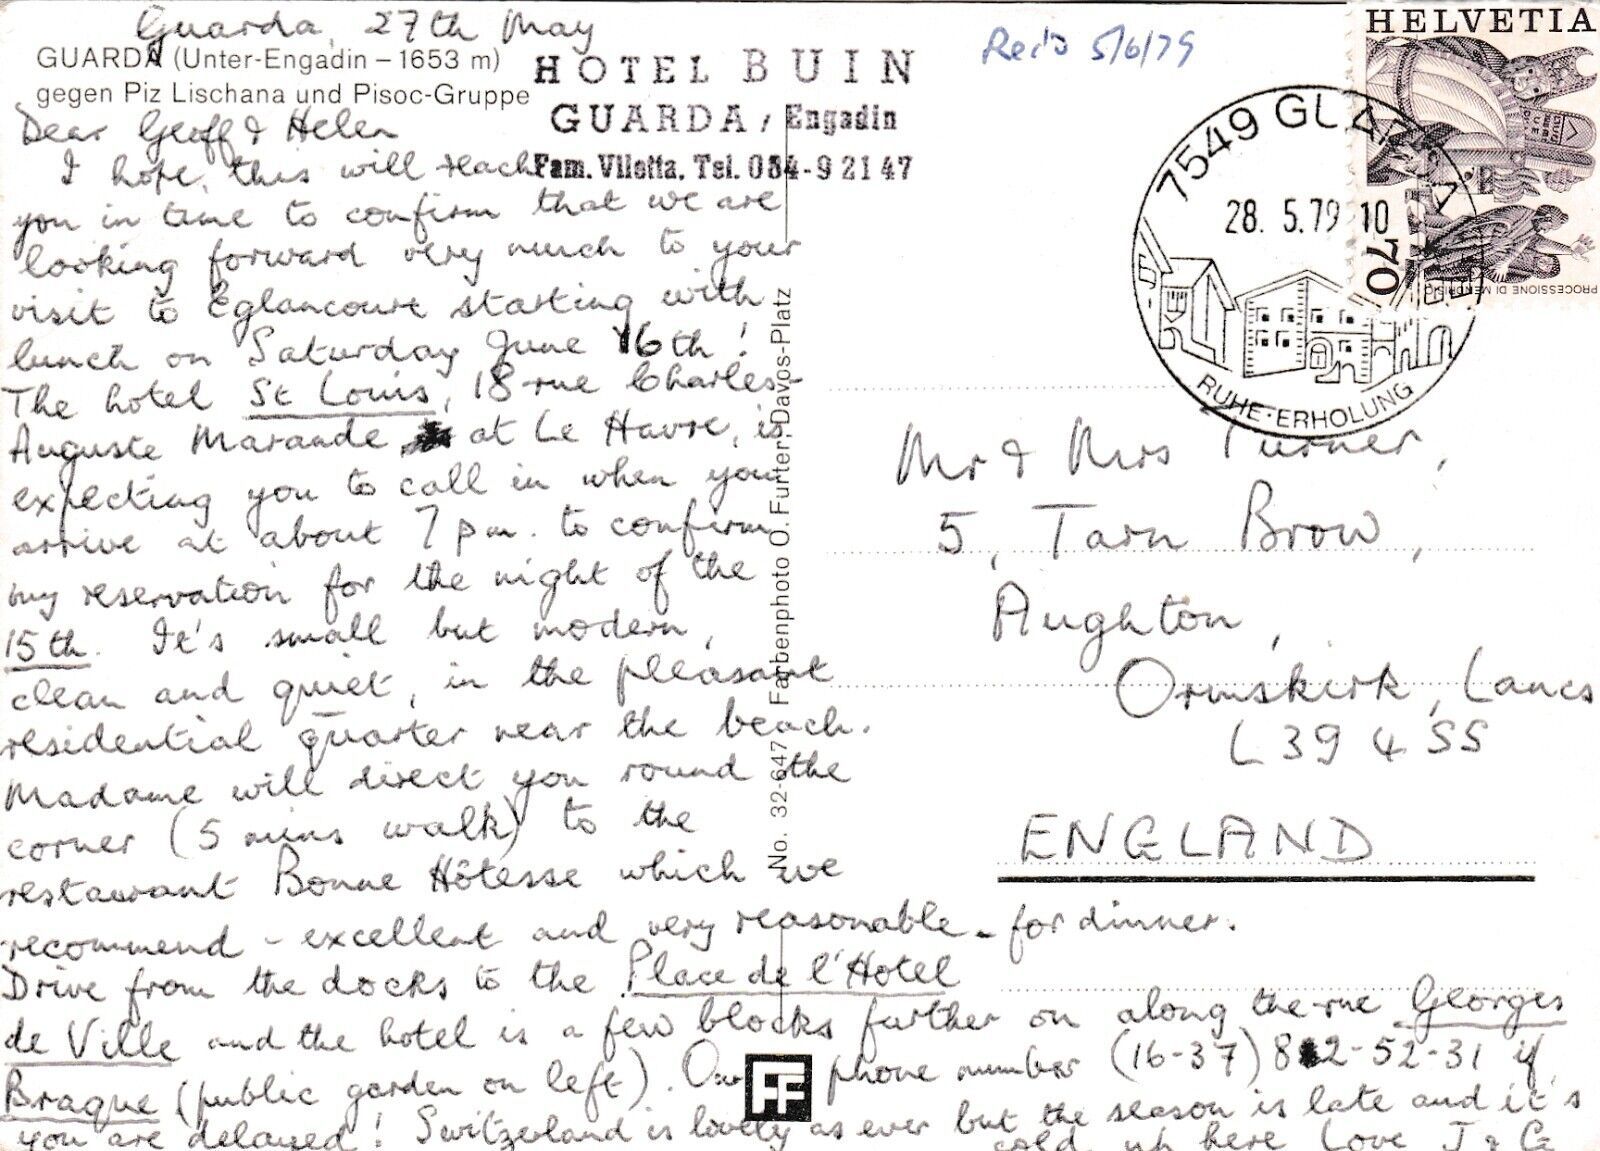 Guarda, 27th May
GUARDA (Unter-Engadin – 1653 m)
gegen Piz Lischana und Pisoc-Gruppe
HOTEL BUIN
GUARDA / Engadin
Fam. Viletta. Tel. 084-9 21 47
Dear Geoff & Helen
I hope, this will reach
you in time to confirm that we are
looking forward very much to your
visit to Eglancourt starting with
lunch on Saturday June 16th!
The hotel St Louis, 18 rue Charles-
Auguste Marande at Le Havre, is
expecting you to call in when you
arrive at about 7 pm. to confirm
my reservation for the night of the
15th. It's small but modern,
clean and quiet, in the pleasant
residential quarter near the beach.
Madame will direct you round the
corner (5 mins walk) to the
restaurant Bonne Hôtesse which we
recommend - excellent and very reasonable - for dinner.
Drive from the docks to the Place de l'Hotel
de Ville and the hotel is a few blocks further on along the rue Georges
Braque (public garden on left). Our phone number (16-37) 812-52-31 if
you are delayed! Switzerland is lovely as ever but the season is late and it's
cold up here Love J & G
No. 32-647 Farbenphoto O. Furter, Davos-Platz
FF
Rec'd 5/6/79
HELVETIA
70
PROCESSIONE DI MENDRISIO
7549 GUARDA
28. 5.79 10
RUHE·ERHOLUNG
Mr & Mrs Turner,
5, Tarn Brow,
Aughton,
Ormskirk, Lancs
L39 4SS
ENGLAND